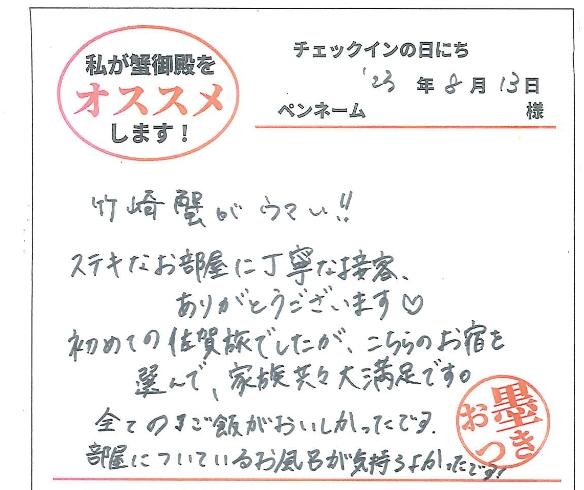 私が蟹御殿を
オススメ
します!
チェックインの日にち
'23年8月13日
ペンネーム 様
竹崎蟹がウマい!!
ステキなお部屋に丁寧な接客、
ありがとうございます♡
初めての佐賀旅でしたが、こちらのお宿を
選んで、家族共々大満足です。
全てのご飯がおいしかったです.
部屋についているお風呂が気持ちよかったです!
お墨つき